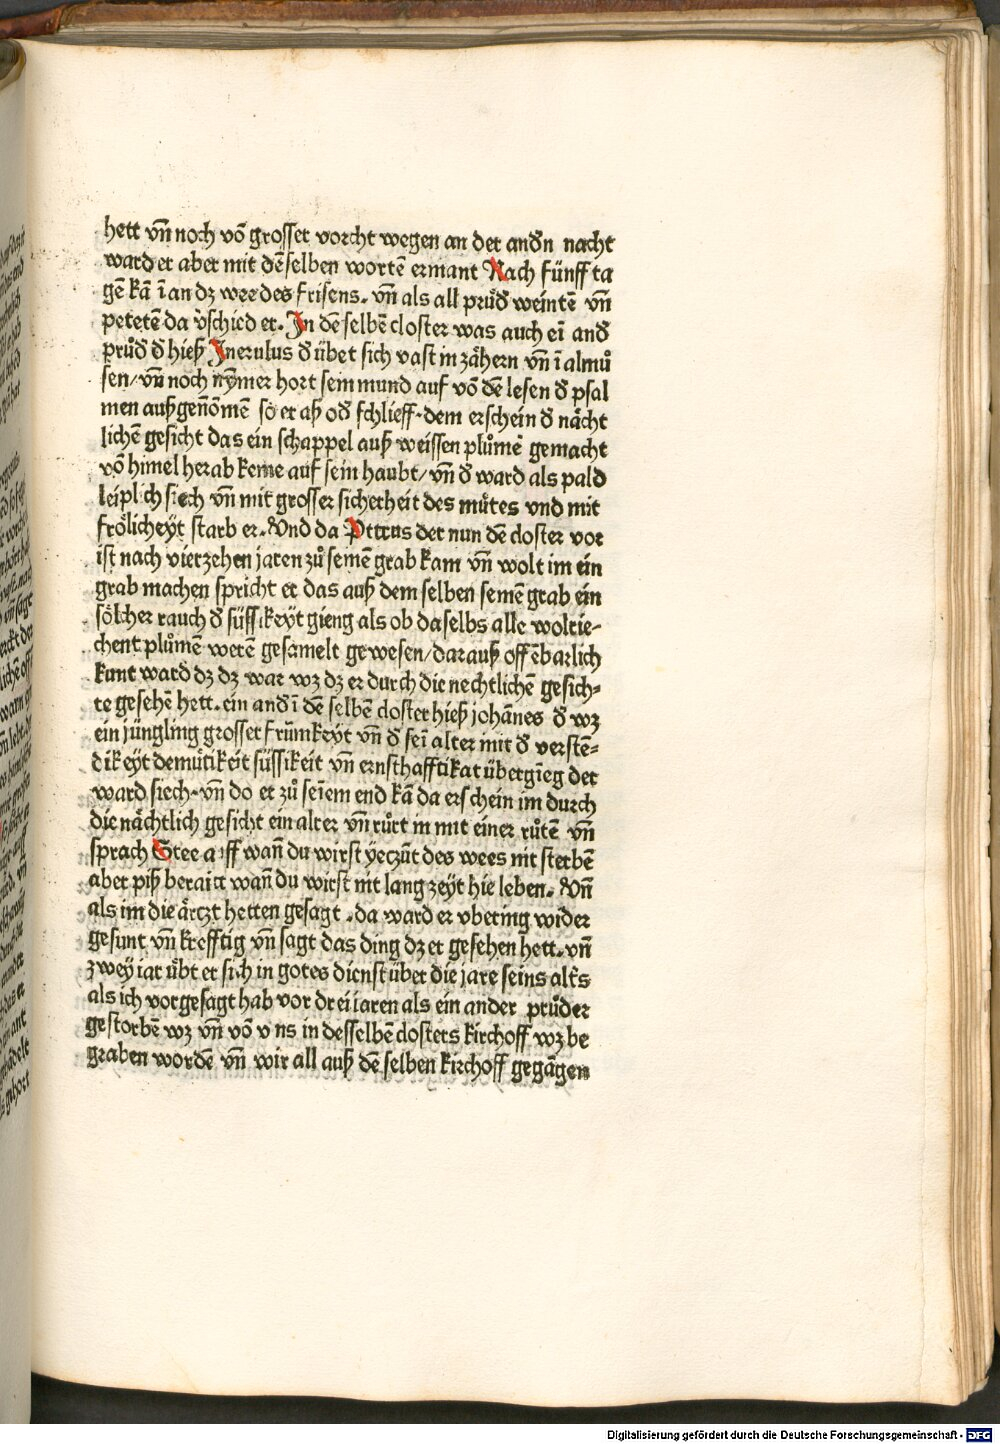 hett vñ noch võ grosser vorcht wegen an der andn̄ nacht
ward er aber mit dē selben wortē ermant Nach fünff ta
gē kā ī an dz wee des frisens. vñ als all průd̄ weintē vñ
petetē da v̄schied er. In dē selbē closter was auch eī and̄
průd̄ d̄ hieß Jnerulus d̄ übet sich vast in zähern vñ ī almů
sen/ vñ noch nȳmer hort sein mund auf võ dē lesen d̄ psal
men außgeñomē so er aß od̄ schlieff. dem erschein d̄ nächt
lichē gesicht das ein schappel auß weissen plůmē gemacht
võ himel herab keme auf sein haubt/ vñ d̄ ward als pald
leiplich siech vñ mit grosser sicherheit des můtes vnd mit
frölicheyt starb er. Vnd da Petrus der nun dē closter vor
ist nach vierzehen jaren zů seinē grab kam vñ wolt im ein
grab machen spricht er das auß dem selben seinē grab ein
sölcher rauch d̄ süssikeyt gieng als ob daselbs alle wolrie-
chent plůmē werē gesamelt gewesen/ darauß offēbarlich
kunt ward dz dz war wz dz er durch die nechtlichē gesich-
te gesehē hett. ein and̄ ī dē selbē closter hieß johānes d̄ wz
ein jüngling grosser frümkeyt vñ d̄ seī alter mit d̄ verstē-
dikeyt demütikeit süssikeit vñ ernsthafftikat übergīeg der
ward siech. vñ do er zů seīem end kā da erschein im durch
die nächtlich gesicht ein alter vñ růrt in mit einer růtē vñ
sprach Stee auff wañ du wirst yeczūt des wees nit sterbē
aber piß berait wañ du wirst nit lang zeyt hie leben. Vñ
als im die ärczt hetten gesagt. da ward er vbering wider
gesunt vñ krefftig vñ sagt das ding dz er gesehen hett. vñ
zwey iar übt er sich in gotes dienst über die jare seins alt̄s
als ich vorgesagt hab vor drei iaren als ein ander průder
gestorbē wz vñ võ vns in desselbē closters kirchoff wz be
graben wordē vñ wir all auß dē selben kirchoff gegāgen
Digitalisierung gefördert durch die Deutsche Forschungsgemeinschaft - DFG